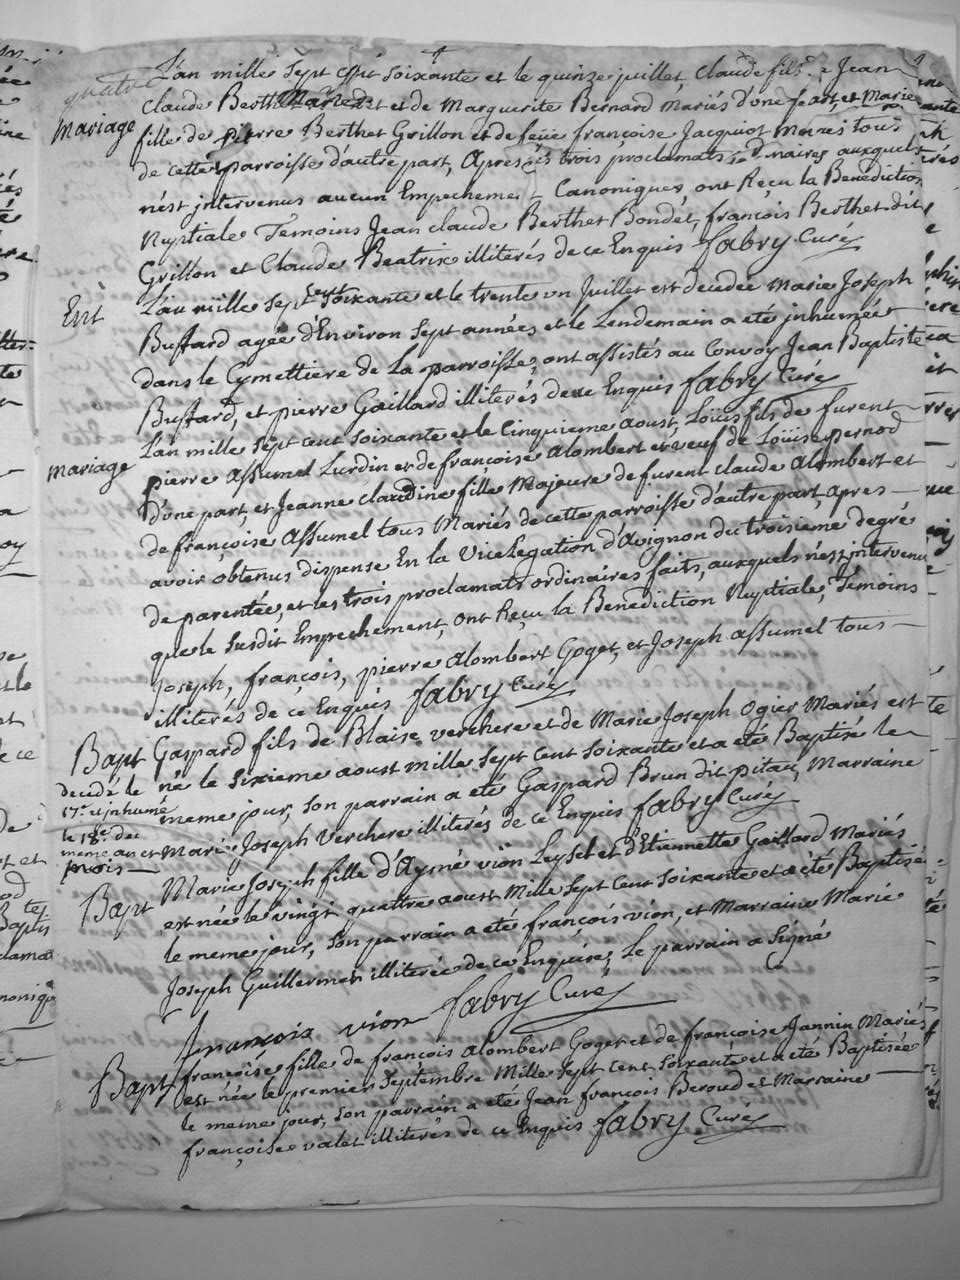 quatre
L'an mille Sept cent Soixante et le quinze juillet Claude fils de Jean
mariage
Claude Berthet et de Marguerite Bernard Mariés d'une part, et Marie
fille de pierre Berthet Grillon et de feüe françoise Jacquiot Mariés tous
de cette parroisse d'autre part, Apres les trois proclamats ordinaires auxquels
n'est intervenus aucun Empechement Canoniques, ont Reçu la Benediction
Nuptiale Temoins Jean claude Berthet Bondét, françois Berthet dit
Grillon et Claude Beatrix illiterés de ce Enquis fabry Curé
Ent
L'an mille Sept cent Soixante et le trente un Juillet est decedée Marie Joseph
Buffard agée d'Environ Sept années et le Lendemain a eté jnhumée
dans le Cymettiere de La parroisse, ont assistés au Convoy Jean Baptiste
Buffard, et pierre Gaillard illiterés de ce Enquis fabry Curé
mariage
L'an mille Sept cent Soixante et le Cinquieme aoust, Loüis fils de furent
pierre Assumel Lurdin et de françoise Alombert et veuf de Loüise pernod
d'une part, et Jeanne Claudine fille Majeure de furent claude Alombert et
de françoise Assumel tous Mariés de cette parroisse d'autre part, apres
avoir obtenus dispense En la Vicelegation d'Avignon du troisieme degré
de parentée, et les trois proclamats ordinaires faits, auxquels n'est intervenu
que le Susdit Empechement, ont Reçu la Benediction Nuptiale, Témoins
Joseph, françois, pierre Alombert Goget, et Joseph assumel tous
illiterés de ce Enquis fabry Curé
Bapt Gaspard fils de Blaise verchere et de Marie Joseph Ogier Mariés est
decedé le né le Sixieme aoust mille Sept cent Soixante et a eté Baptisé le
17e et jnhumé meme jour, Son parrain a eté Gaspard Brun dit pitau, Marraine
le 18e des
meme an et Marie Joseph Verchere illiterés de ce Enquis fabry Curé
mois
Bapt Marie Joseph fille d'Aymé vion Leyset et d'Etiennette Gaillard Mariés
est née le vingt quattre aoust Mille Sept cent Soixante et a eté Baptisée
le meme jour, Son parrain a eté françois vion, et Marraine Marie
Joseph Guillermet illiterée de ce Enquise, Le parrain a Signé
françois vion fabry Curé
Bapt françoise fille de francois Alombert Goget et de françoise Jannin Mariés
est née le premier Septembre Mille Sept cent Soixante et a eté Baptisée
le meme jour, Son parrain a eté Jean françois Beroud et Marraine
françoise valet illiterés de ce Enquis fabry Curé